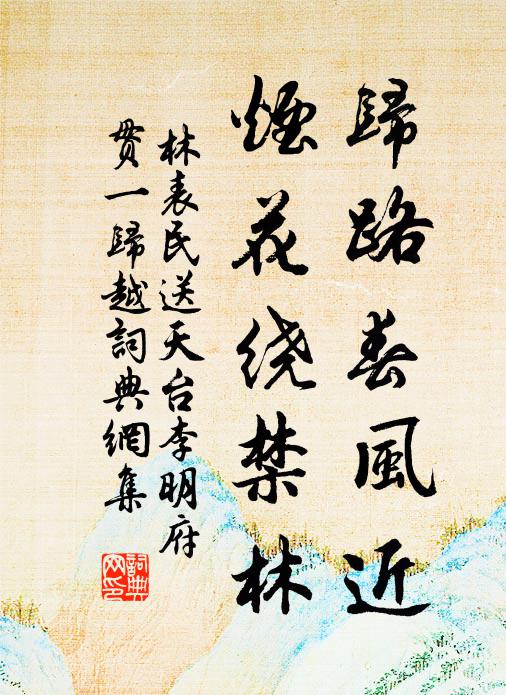 歸路春風近
煙花绕禁林
林表民送天台李明府
貫一歸越詞典網集
詞典